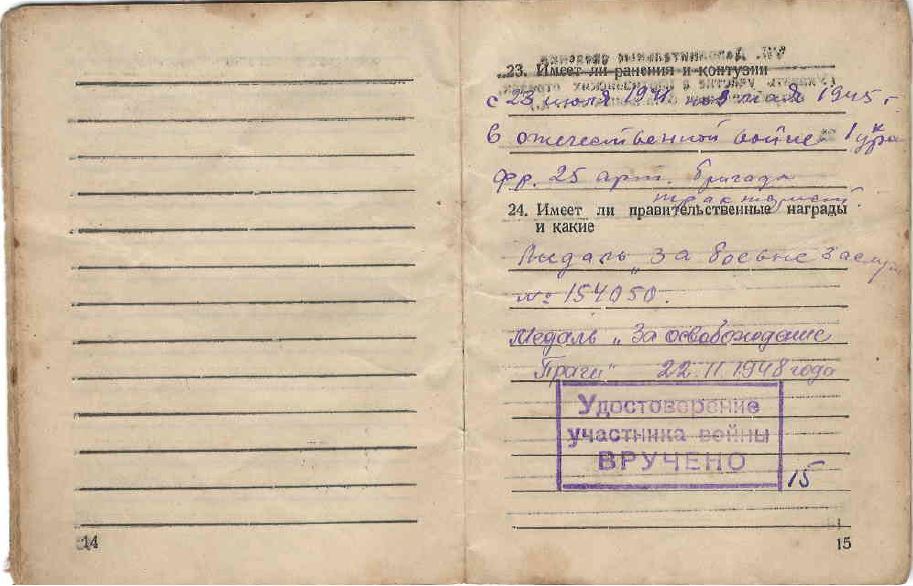 14
23. Имеет ли ранения и контузии
с 23 июля 1941 по 9 мая 1945 г
в отечественной войне 1 укр
фр. 25 арт. бригада
тракторист.
24. Имеет ли правительственные награды
и какие
Медаль „За боевые заслуги
№ 154050.
Медаль „За освобождение
Праги" 22.11.1948 года
Удостоверение
участника войны
ВРУЧЕНО
15
15